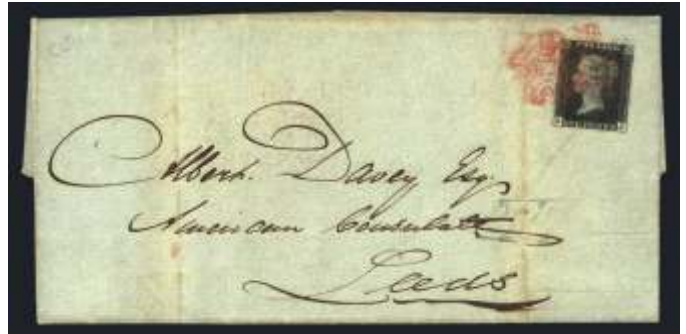 Albert. Davey Esq.
American Consulate
Leeds